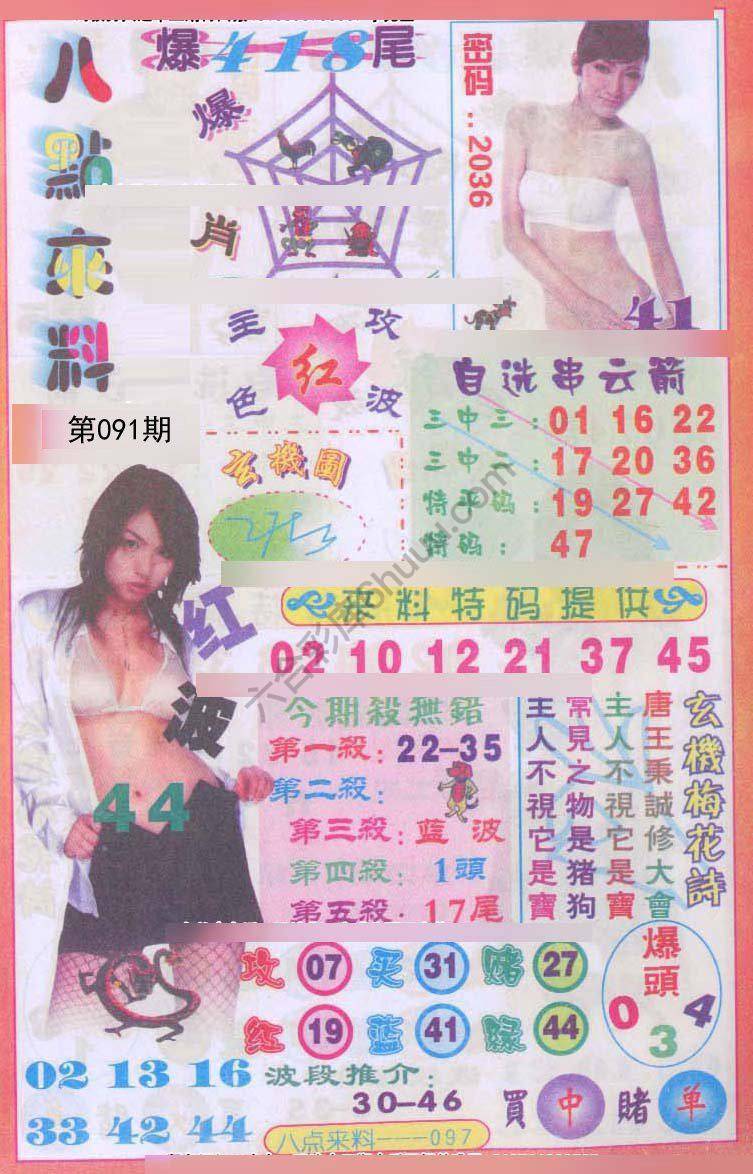 爆418尾
八點來料
爆肖
密码：2036
41
主攻
红
色波
第091期
玄機圖
自选串云箭
三中三：01 16 22
三中二：17 20 36
特平码：19 27 42
特码：47
来料特码提供
红波
44
02 10 12 21 37 45
今期殺無錯
第一殺：22-35
第二殺：
第三殺：蓝波
第四殺：1頭
第五殺：17尾
玄機梅花詩
唐王秉誠修大會
主人不視它是寶
常見之物是猪狗
主人不視它是寶
攻 07 买 31 赌 27
红 19 蓝 41 绿 44
爆頭
0 3 4
02 13 16
33 42 44
波段推介：
30-46
買中賭单
八点来料---097
六合彩库Shuuu.com